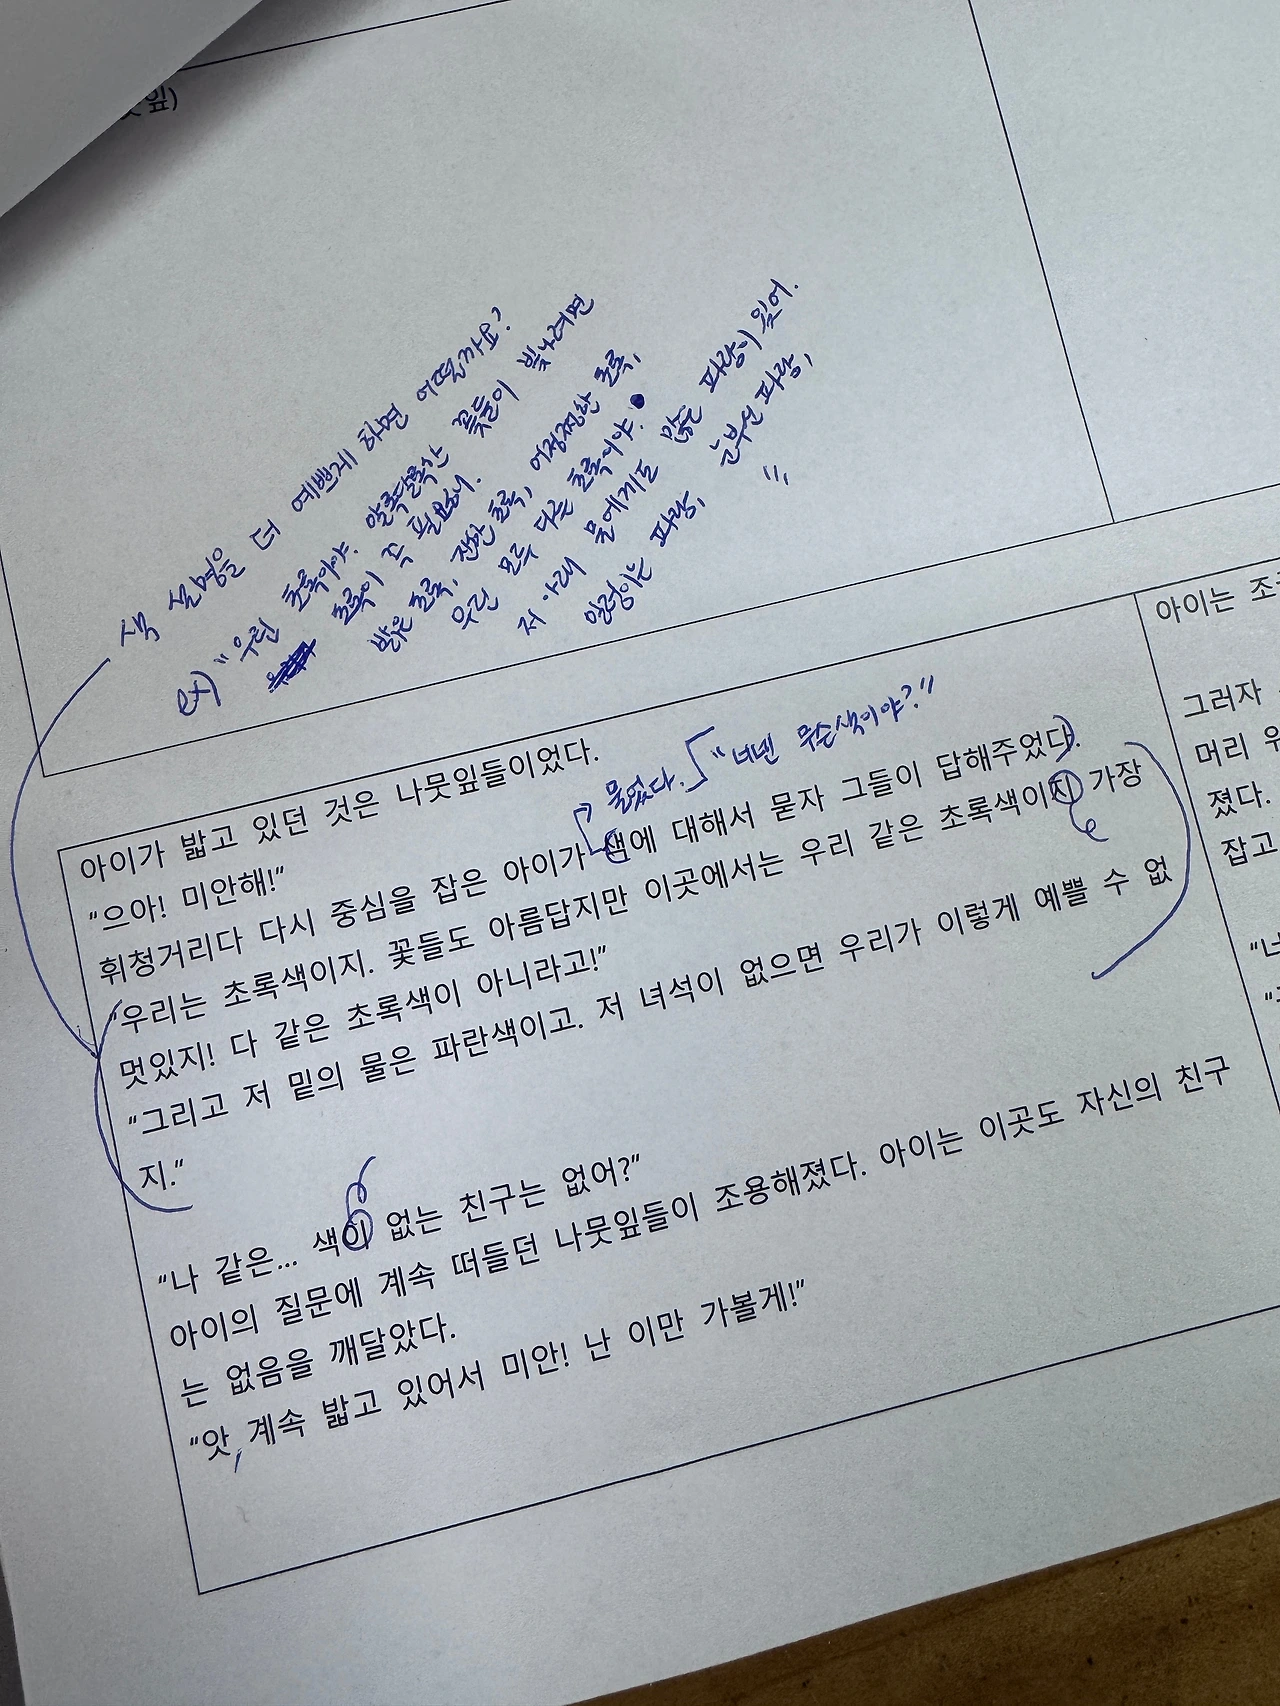 잎)
색 설명을 더 예쁘게 하면 어떨까요?
ex) "우린 초록이야. 알록달록한 꽃들이 빛나려면
초록이 꼭 필요해.
밝은 초록, 진한 초록, 어정쩡한 초록,
우린 모두 다른 초록이야.
저 아래 물에게도 많은 파랑이 있어.
일렁이는 파랑, 눈부신 파랑,
"
물었다. "너넨 무슨색이야?"
아이가 밟고 있던 것은 나뭇잎들이었다.
"으아! 미안해!"
휘청거리다 다시 중심을 잡은 아이가 색에 대해서 묻자 그들이 답해주었다.
"우리는 초록색이지. 꽃들도 아름답지만 이곳에서는 우리 같은 초록색이지 가장
멋있지! 다 같은 초록색이 아니라고!"
"그리고 저 밑의 물은 파란색이고. 저 녀석이 없으면 우리가 이렇게 예쁠 수 없
지."
"나 같은... 색이 없는 친구는 없어?"
아이의 질문에 계속 떠들던 나뭇잎들이 조용해졌다. 아이는 이곳도 자신의 친구
는 없음을 깨달았다.
"앗, 계속 밟고 있어서 미안! 난 이만 가볼게!"
아이는
그러자
머리
졌다.
잡고
"너